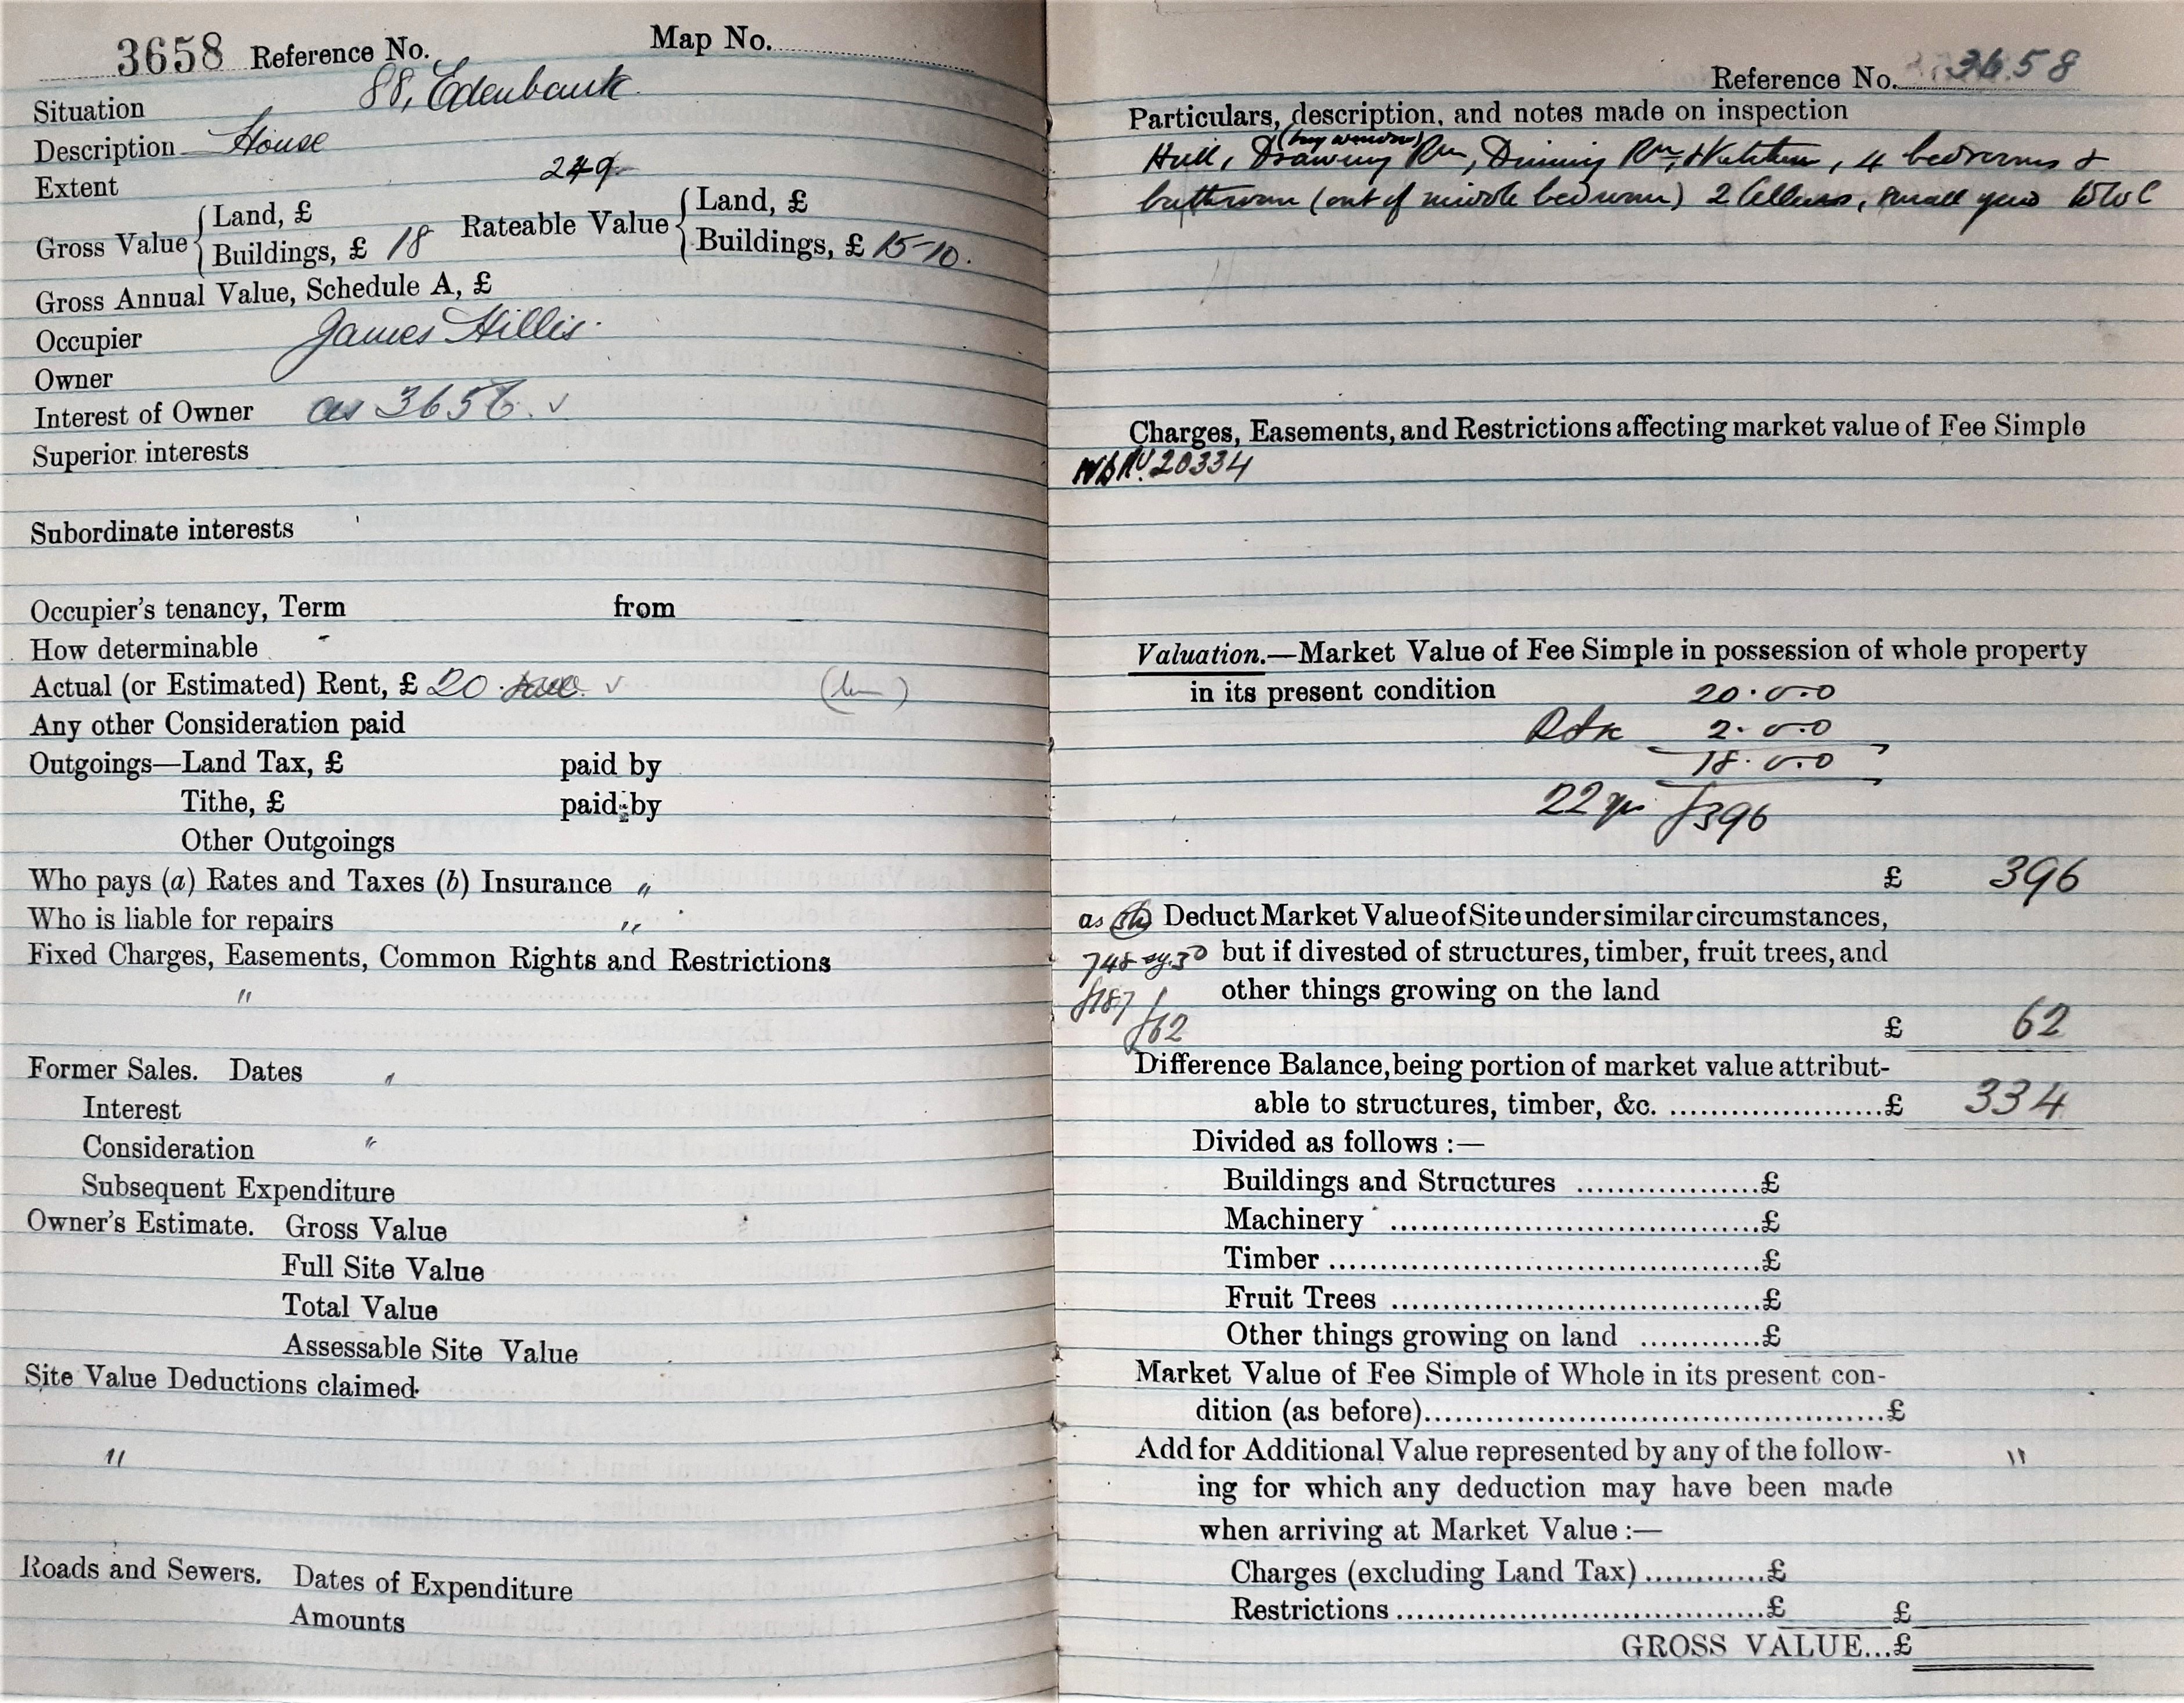 3658 Reference No. Map No.
Situation 88, Edenbank
Description House
Extent 249
Gross Value { Land, £ Rateable Value { Land, £
Buildings, £ 18 Buildings, £ 15-10.
Gross Annual Value, Schedule A, £
Occupier James Hillis.
Owner
Interest of Owner as 3656. ✓
Superior interests
Subordinate interests
Occupier's tenancy, Term from
How determinable
Actual (or Estimated) Rent, £ 20 ✓
Any other Consideration paid
Outgoings—Land Tax, £ paid by
Tithe, £ paid by
Other Outgoings
Who pays (a) Rates and Taxes (b) Insurance "
Who is liable for repairs "
Fixed Charges, Easements, Common Rights and Restrictions
"
Former Sales. Dates "
Interest
Consideration "
Subsequent Expenditure
Owner's Estimate. Gross Value
Full Site Value
Total Value
Assessable Site Value
Site Value Deductions claimed
"
Roads and Sewers. Dates of Expenditure
Amounts
Reference No. 3658
Particulars, description, and notes made on inspection
(bay window)
Hall, Drawing Rm, Dining Rm, & Kitchen, 4 bedrooms &
bathroom (out of middle bedroom) 2 Cellars, small yard & W C
Charges, Easements, and Restrictions affecting market value of Fee Simple
20334
Valuation.—Market Value of Fee Simple in possession of whole property
in its present condition 20.0.0
2.0.0
18.0.0
22 yrs £396
£ 396
as Deduct Market Value of Site under similar circumstances,
748 but if divested of structures, timber, fruit trees, and
£187 other things growing on the land
£62
£ 62
Difference Balance, being portion of market value attribut-
able to structures, timber, &c. ......................£ 334
Divided as follows :—
Buildings and Structures ..................£
Machinery ....................................£
Timber ..........................................£
Fruit Trees ....................................£
Other things growing on land ............£
Market Value of Fee Simple of Whole in its present con-
dition (as before)..............................................£
Add for Additional Value represented by any of the follow- "
ing for which any deduction may have been made
when arriving at Market Value :—
Charges (excluding Land Tax) ............£
Restrictions ....................................£ £
GROSS VALUE...£